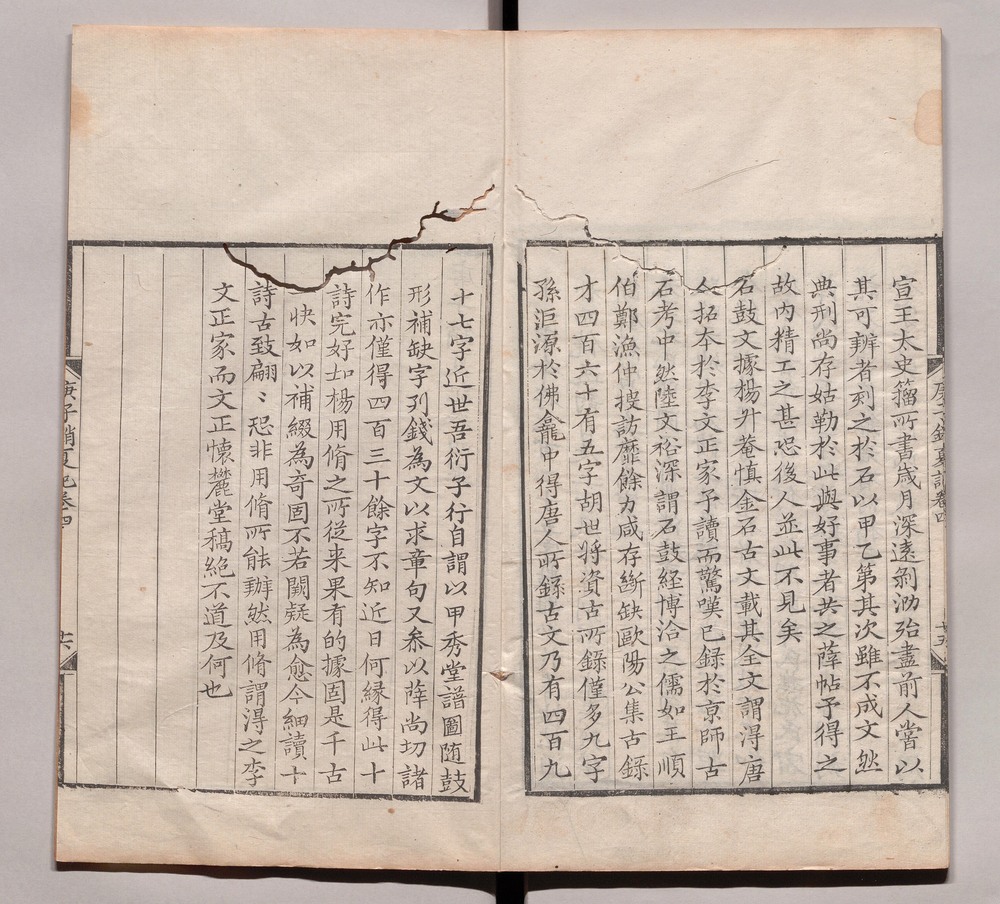 宣王太史籀所書歲月深遠剝泐殆盡前人嘗以
其可辨者刻之於石以甲乙第其次雖不成文然
典刑尚存姑勒於此與好事者共之薛帖予得之
故內精工之甚恐後人並此不見矣
石鼓文據楊升菴慎金石古文載其全文謂得唐
人拓本於李文正家予讀而驚嘆已録於京師古
石考中然陸文裕深謂石鼓經博洽之儒如王順
伯鄭漁仲搜訪靡餘力咸存斷缺歐陽公集古録
才四百六十有五字胡世將資古所錄僅多九字
孫洰源於佛龕中得唐人所錄古文乃有四百九
十七字近世吾衍子行自謂以甲秀堂譜圖随鼓
形補缺字列錢為文以求章句又叅以薛尚切諸
作亦僅得四百三十餘字不知近日何緣得此十
詩完好如楊用脩之所從来果有的據固是千古
一快如以補綴為奇固不若闕疑為愈今細讀十
詩古致翩〻恐非用脩所能辦然用脩謂得之李
文正家而文正懷麓堂稿絕不道及何也
庚子銷夏記卷四